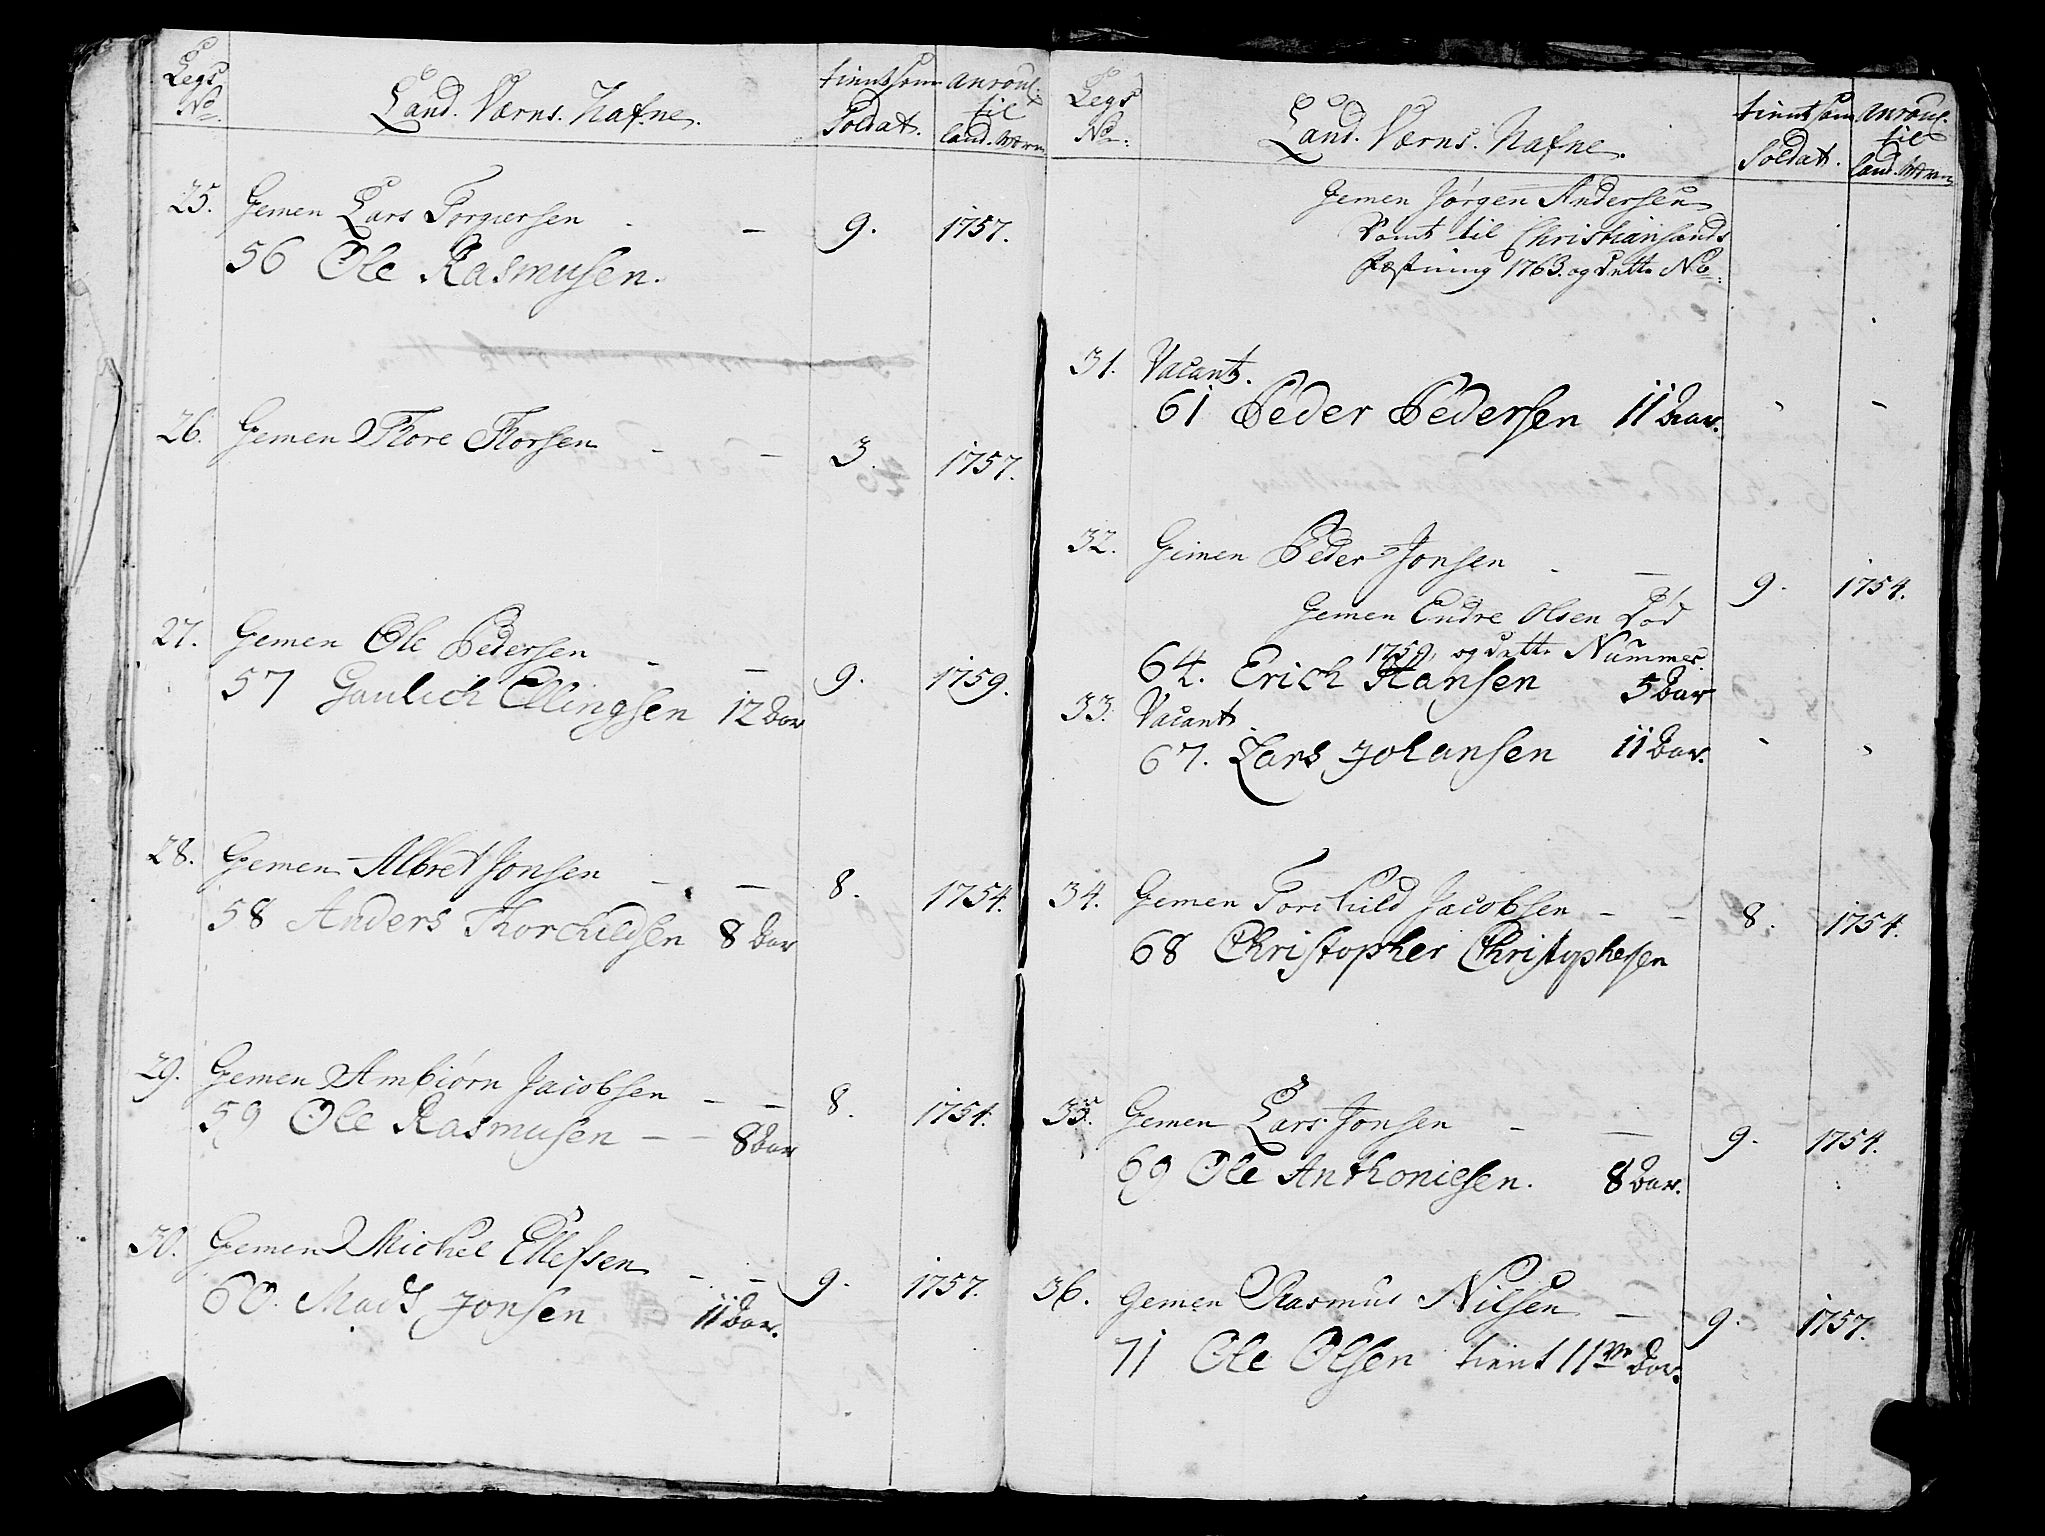 Legs No
Land. Værns. Nafne.
tient som Soldat.
anroul: til land. Wærn
25. Gemen Lars Torgiersen - - 9. 1757.
56 Ole Rasmusen.
26. Gemen Thore Thorsen - - 3. 1757.
27. Gemen Ole Pedersen - - 9. 1759.
57 Gaulich Ellingsen 12 Aar
28. Gemen Albret Jonsen - - 8. 1754.
58 Anders Thorchildsen 8 Aar
29. Gemen Ambiørn Jacobsen - - 8. 1754.
59 Ole Rasmusen - - 8 Aar
30. Gemen Michel Ellefsen - - 9. 1757.
60. Mads Jonsen 11 Aar.
Legs No:
Land. Værns. Nafne.
tient som Soldat.
anroul. til land. Wærn
Gemen Jørgen Andersen
Dømt til Christiansands
Fæstning 1763. og dette No:
31. Vacant.
61 Peder Pedersen 11 Aar.
32. Gemen Peder Jonsen - - 9. 1754.
Gemen Endre Olsen Død
1759, og dette Nummer.
64. Erich Hansen 5 Aar
33. Vacant.
67. Lars Johansen 11 Aar.
34. Gemen Torchild Jacobsen - - 8. 1754.
68 Christopher Christophersen
35. Gemen Lars Jonsen - - 9. 1754.
69 Ole Anthoniesen. 8 Aar.
36. Gemen Rasmus Nilsen - 9. 1757.
71 Ole Olsen tient 11 Aar.